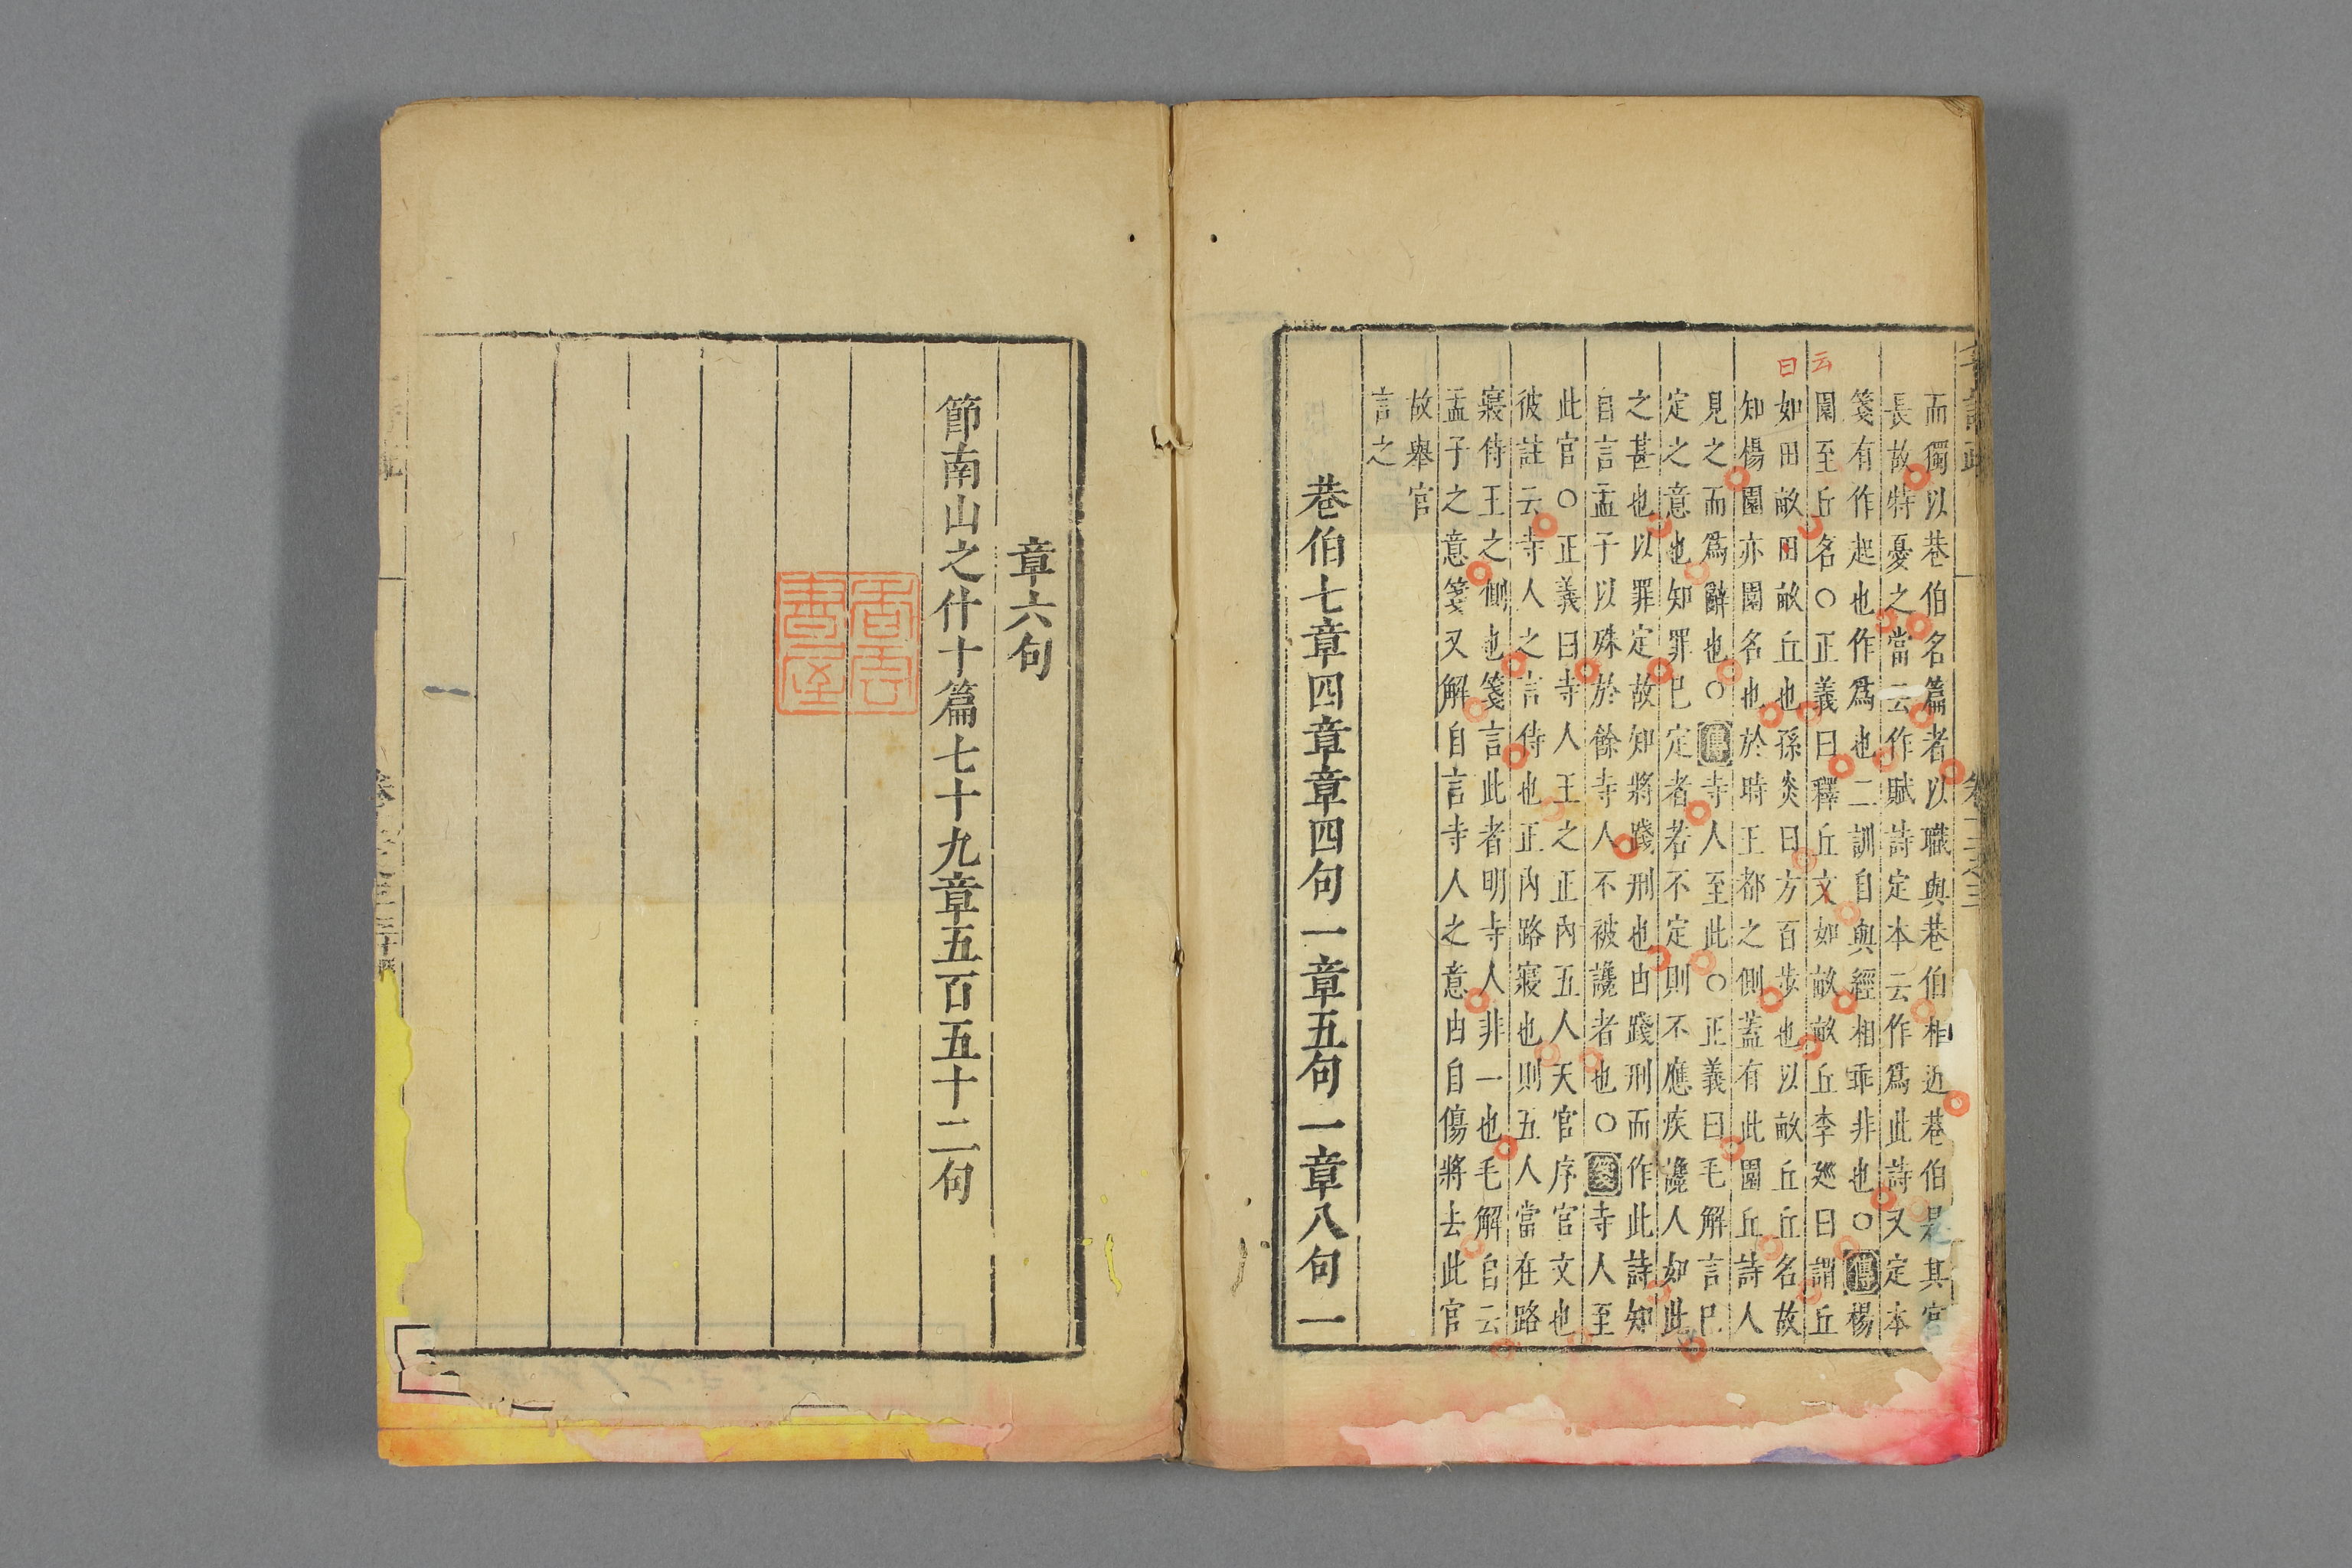 云
曰
而獨以巷伯名篇者以職與巷伯相近巷伯是其宮
長故特憂之當云作賦詩定本云作爲此詩又定本
箋有作起也作爲也二訓自與經相乖非也○傳楊
園至丘名○正義曰釋丘文如畝畝丘李廵曰謂丘
如田畝田畝丘也孫炎曰方百步也以畝丘丘名故
知楊園亦園名也於時王都之側蓋有此園丘詩人
見之而爲辭也○傳寺人至此○正義曰毛解言巳
定之意也知罪巳定者若不定則不應疾讒人如此
之甚也以罪定故知將踐刑也由踐刑而作此詩知
自言孟子以殊於餘寺人不被讒者也○箋寺人至
此官○正義曰寺人王之正內五人天官序官文也
彼註云寺人之言侍也正內路寢也則五人當在路
寢侍王之側也箋言此者明寺人非一也毛解自云
孟子之意箋又解自言寺人之意由自傷將去此官
故舉官
言之
巷伯七章四章章四句一章五句一章八句一
章六句
節南山之什十篇七十九章五百五十二句